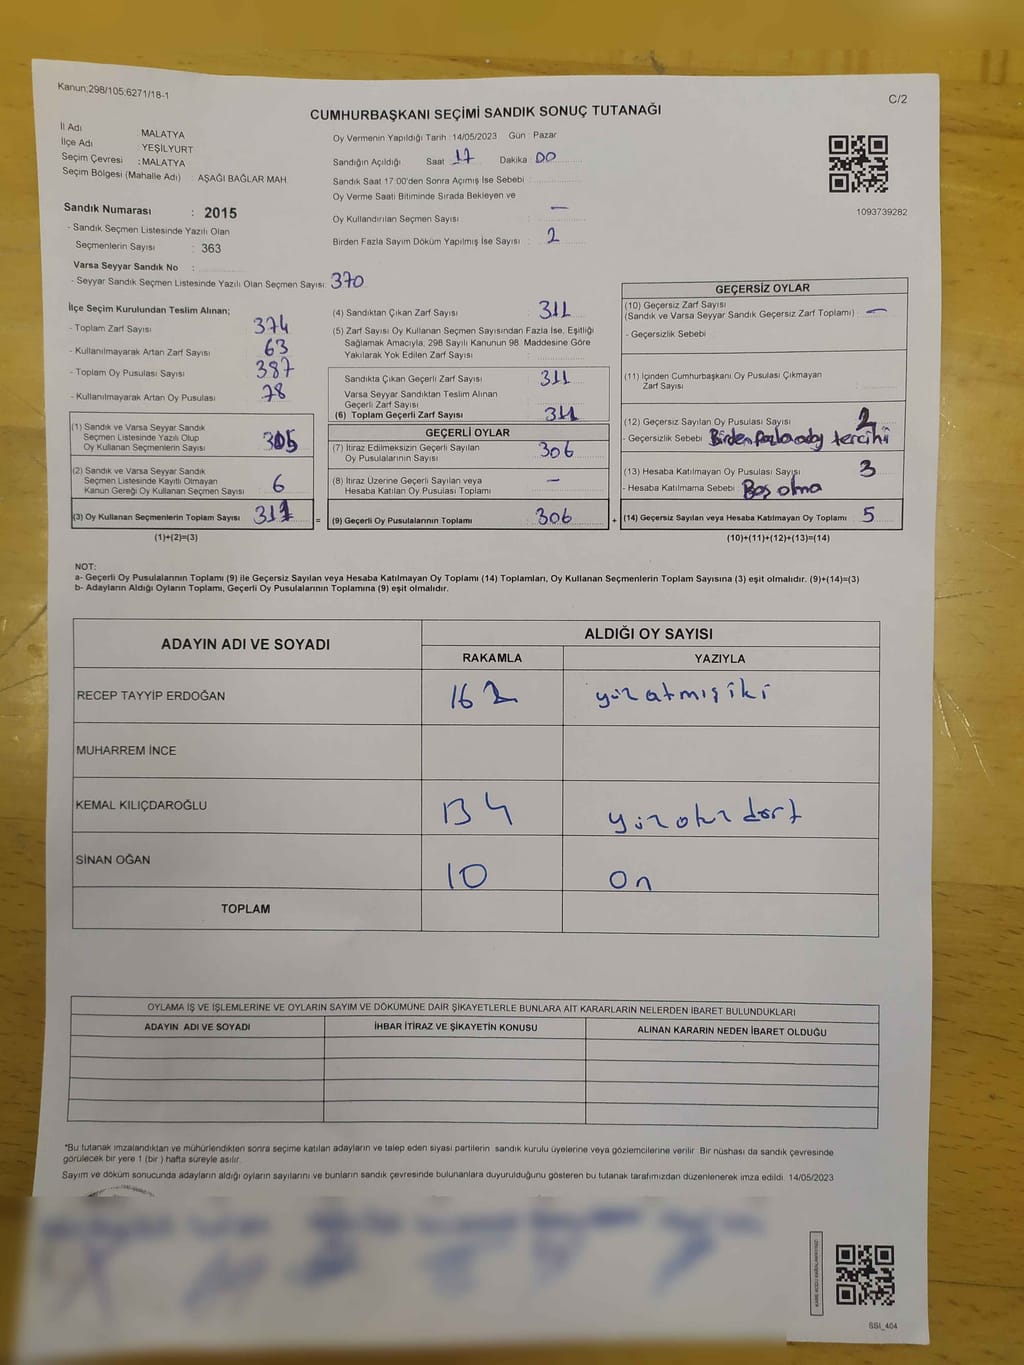 Kanun;298/105,6271/18-1
C/2
CUMHURBAŞKANI SEÇİMİ SANDIK SONUÇ TUTANAĞI
İl Adı : MALATYA
İlçe Adı YEŞİLYURT
Seçim Çevresi : MALATYA
Seçim Bölgesi (Mahalle Adı) : AŞAĞI BAĞLAR MAH.
Sandık Numarası : 2015
- Sandık Seçmen Listesinde Yazılı Olan
Seçmenlerin Sayısı : 363
Varsa Seyyar Sandık No :
- Seyyar Sandık Seçmen Listesinde Yazılı Olan Seçmen Sayısı: 370
Oy Vermenin Yapıldığı Tarih : 14/05/2023 Gün : Pazar
Sandığın Açıldığı Saat : 17 Dakika : 00
Sandık Saat 17:00'den Sonra Açımış İse Sebebi :
Oy Verme Saati Bitiminde Sırada Bekleyen ve
Oy Kullandırılan Seçmen Sayısı : —
Birden Fazla Sayım Döküm Yapılmış İse Sayısı : 2
1093739282
İlçe Seçim Kurulundan Teslim Alınan;
- Toplam Zarf Sayısı : 374
- Kullanılmayarak Artan Zarf Sayısı : 63
- Toplam Oy Pusulası Sayısı : 387
- Kullanılmayarak Artan Oy Pusulası : 78
(1) Sandık ve Varsa Seyyar Sandık
Seçmen Listesinde Yazılı Olup
Oy Kullanan Seçmenlerin Sayısı 305
(2) Sandık ve Varsa Seyyar Sandık
Seçmen Listesinde Kayıtlı Olmayan
Kanun Gereği Oy Kullanan Seçmen Sayısı 6
(3) Oy Kullanan Seçmenlerin Toplam Sayısı 311
(1)+(2)=(3)
(4) Sandıktan Çıkan Zarf Sayısı : 311
(5) Zarf Sayısı Oy Kullanan Seçmen Sayısından Fazla İse, Eşitliği
Sağlamak Amacıyla, 298 Sayılı Kanunun 98. Maddesine Göre
Yakılarak Yok Edilen Zarf Sayısı :
Sandıkta Çıkan Geçerli Zarf Sayısı : 311
Varsa Seyyar Sandıktan Teslim Alınan
Geçerli Zarf Sayısı :
(6) Toplam Geçerli Zarf Sayısı : 311
GEÇERLİ OYLAR
(7) İtiraz Edilmeksizin Geçerli Sayılan
Oy Pusulalarının Sayısı : 306
(8) İtiraz Üzerine Geçerli Sayılan veya
Hesaba Katılan Oy Pusulası Toplamı : —
= (9) Geçerli Oy Pusulalarının Toplamı : 306
GEÇERSİZ OYLAR
(10) Geçersiz Zarf Sayısı
(Sandık ve Varsa Seyyar Sandık Geçersiz Zarf Toplamı) : —
- Geçersizlik Sebebi :
(11) İçinden Cumhurbaşkanı Oy Pusulası Çıkmayan
Zarf Sayısı :
(12) Geçersiz Sayılan Oy Pusulası Sayısı : 2
- Geçersizlik Sebebi : Birden fazla aday tercihi
(13) Hesaba Katılmayan Oy Pusulası Sayısı 3
- Hesaba Katılmama Sebebi : Boş olma
+ (14) Geçersiz Sayılan veya Hesaba Katılmayan Oy Toplamı : 5
(10)+(11)+(12)+(13)=(14)
NOT:
a- Geçerli Oy Pusulalarının Toplamı (9) ile Geçersiz Sayılan veya Hesaba Katılmayan Oy Toplamı (14) Toplamları, Oy Kullanan Seçmenlerin Toplam Sayısına (3) eşit olmalıdır. (9)+(14)=(3)
b- Adayların Aldığı Oyların Toplamı, Geçerli Oy Pusulalarının Toplamına (9) eşit olmalıdır.
ADAYIN ADI VE SOYADI
ALDIĞI OY SAYISI
RAKAMLA YAZIYLA
RECEP TAYYİP ERDOĞAN 162 yüz atmış iki
MUHARREM İNCE
KEMAL KILIÇDAROĞLU 134 yüz otuz dört
SİNAN OĞAN 10 On
TOPLAM
OYLAMA İŞ VE İŞLEMLERİNE VE OYLARIN SAYIM VE DÖKÜMÜNE DAİR ŞİKAYETLERLE BUNLARA AİT KARARLARIN NELERDEN İBARET BULUNDUKLARI
ADAYIN ADI VE SOYADI İHBAR İTİRAZ VE ŞİKAYETİN KONUSU ALINAN KARARIN NEDEN İBARET OLDUĞU
*Bu tutanak imzalandıktan ve mühürlendikten sonra seçime katılan adayların ve talep eden siyasi partilerin sandık kurulu üyelerine veya gözlemcilerine verilir. Bir nüshası da sandık çevresinde
görülecek bir yere 1 (bir) hafta süreyle asılır.
Sayım ve döküm sonucunda adayların aldığı oyların sayılarını ve bunların sandık çevresinde bulunanlara duyurulduğunu gösteren bu tutanak tarafımızdan düzenlenerek imza edildi. 14/05/2023
SSI_404